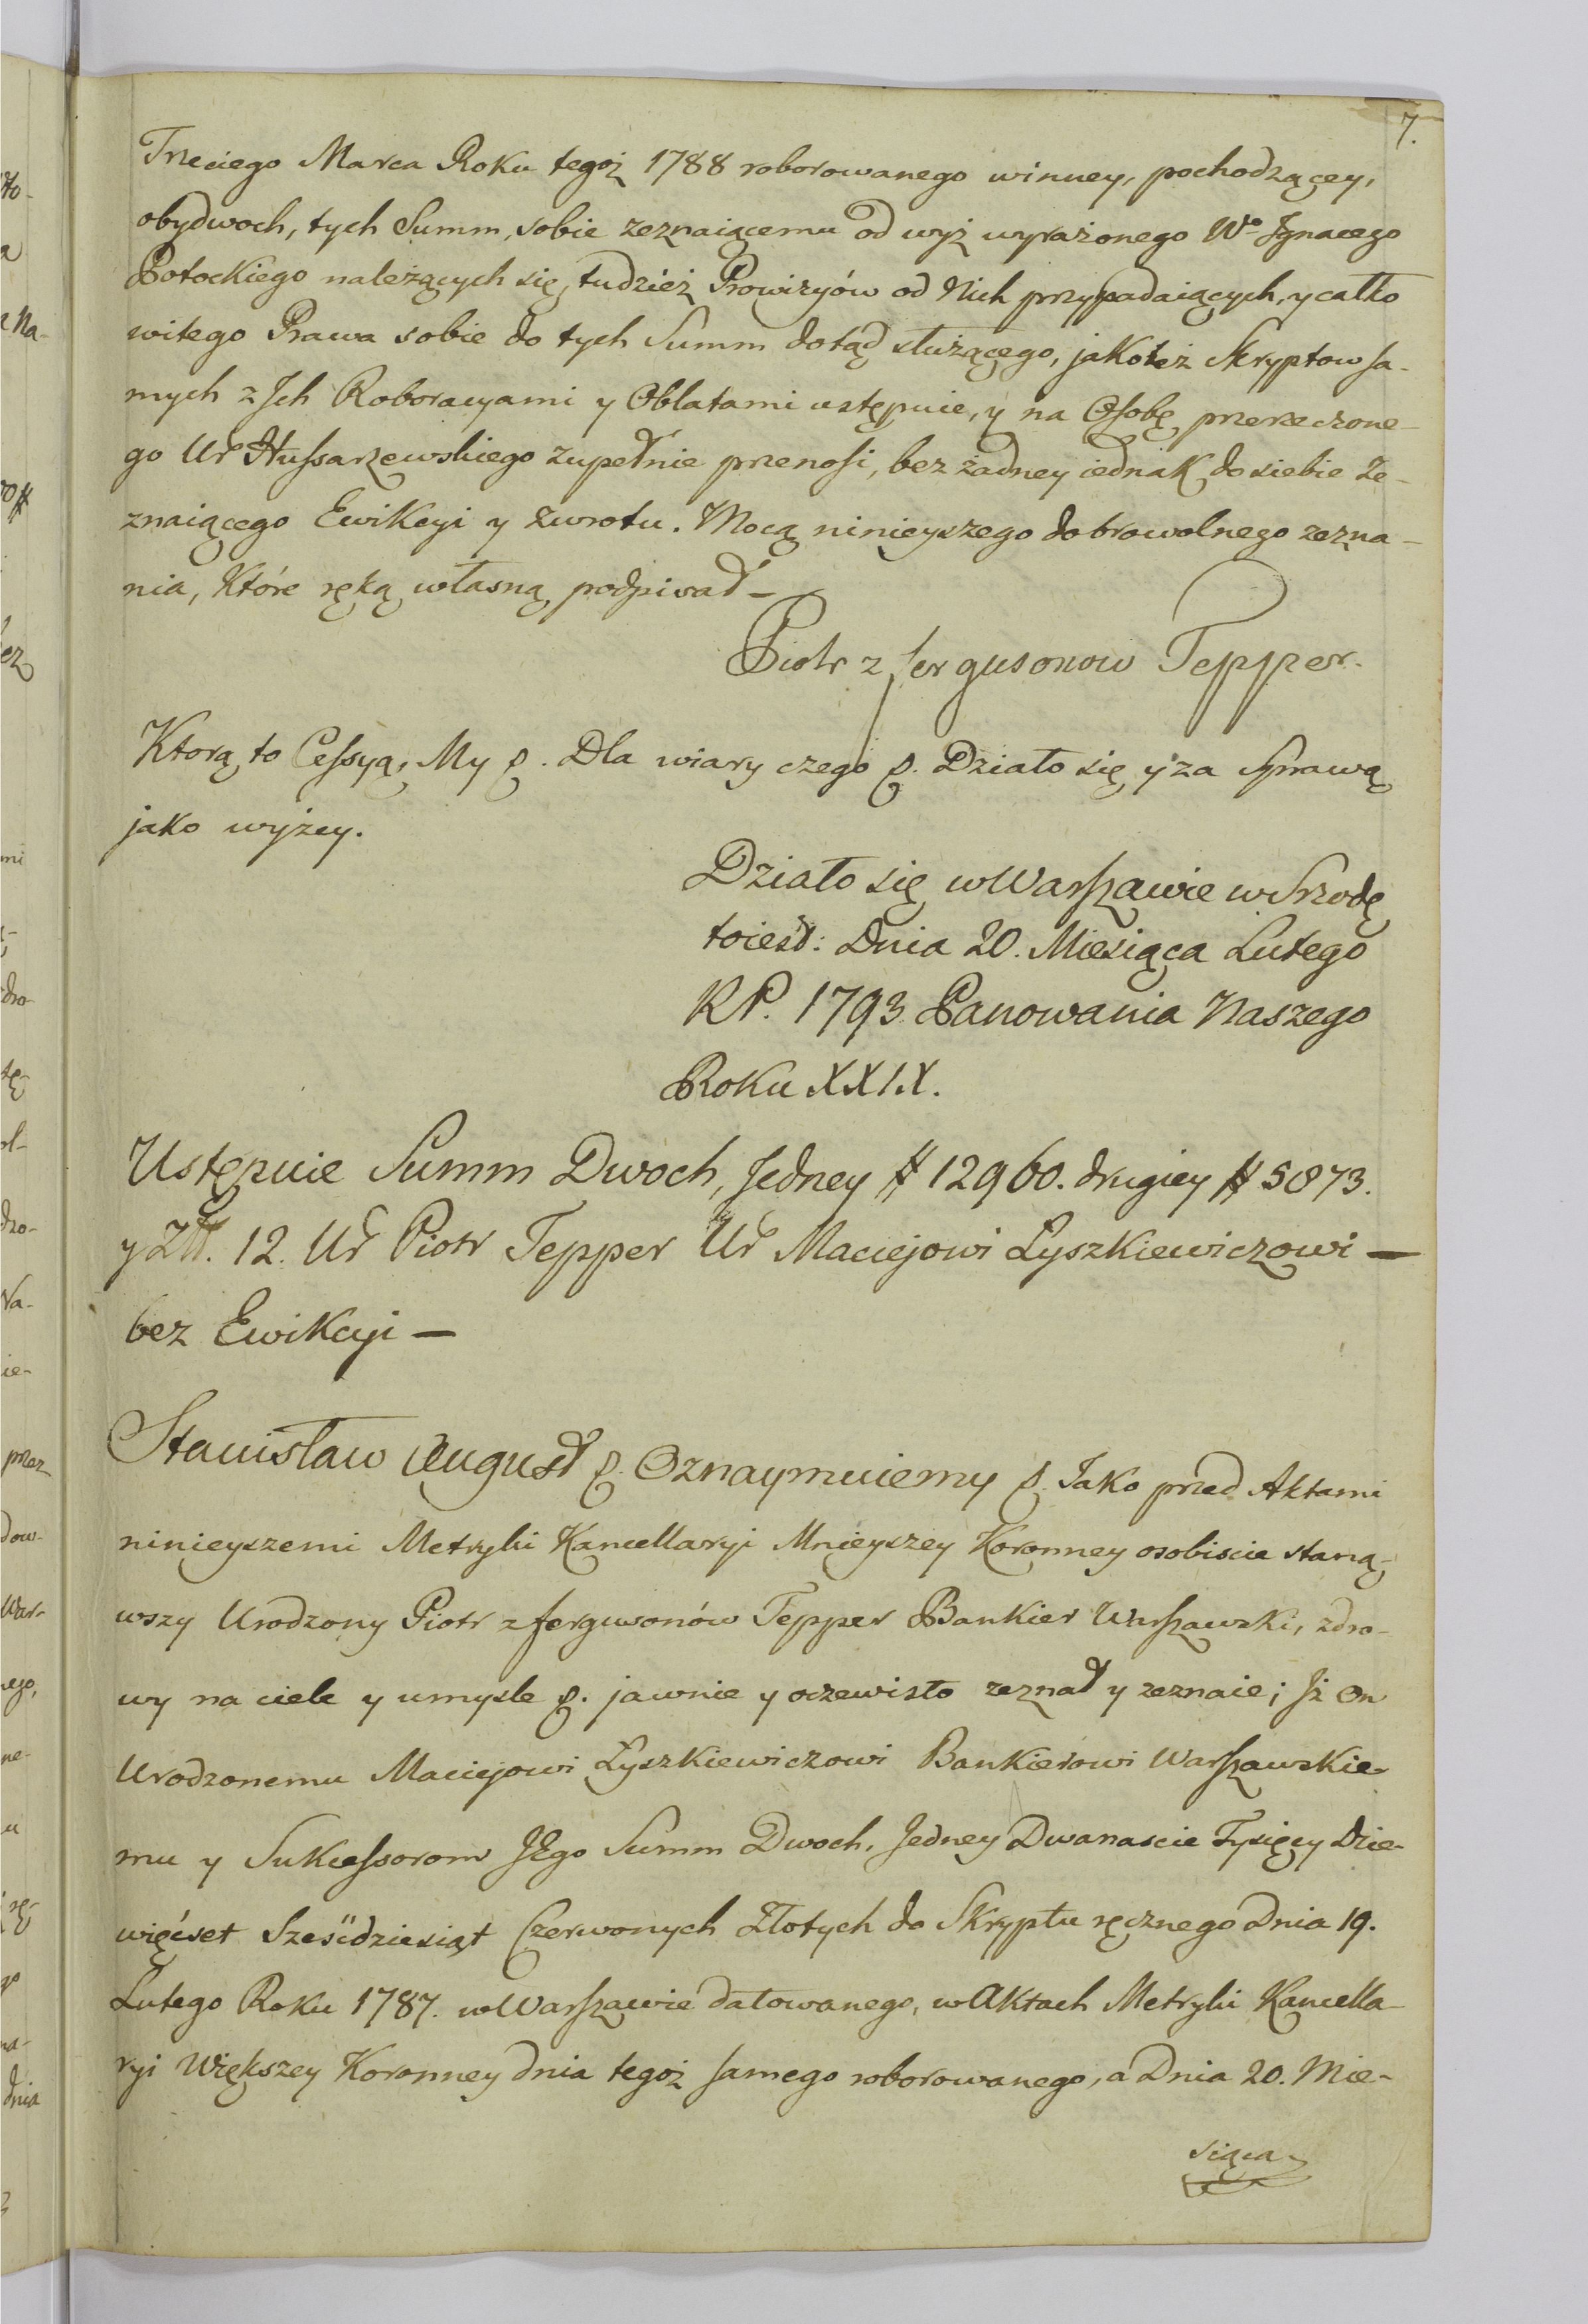 7.
Trzeciego Marca Roku tegoż 1788 roborowanego winney, pochodzącey,
obydwoch, tych Summ, sobie zeznaiącemu od wyż wyrażonego Wo Jgnacego
Potockiego należących się, tudzież Prowizyów od Nich przypadaiących, y całko
witego Prawa sobie do tych Summ dotąd służącego, jakoteż Skryptow sa-
mych z Jch Roboracyami y Oblatami ustępuie, y na Osobę przerzeczone-
go Ur Hussarzewskiego zupełnie przenosi, bez żadney iednak do siebie ze-
znaiącego Ewikcyi y zwrotu. Mocą ninieyszego dobrowolnego zezna-
nia, które ręką własną podpisał –
Piotr z fergusonow Tepper.
Ktorą to Cessyą, My p. Dla wiary czego p. Działo się y za Sprawą
jako wyżey.
Działo się w Warszawie w Srzodę
toiest: Dnia 20. Miesiąca Lutego
RP. 1793 Panowania Naszego
Roku XXIX.
Ustępuie Summ Dwoch, Jedney # 12960. drugiey # 5873.
y Złł. 12. Ur Piotr Tepper Ur Maciejowi Łyszkiewiczowi —
bez Ewikcyi —
Stanisław August p. Oznaymuiemy p. Jako przed Aktami
ninieyszemi Metryki Kancellaryi Mnieyszey Koronney osobiscie staną-
wszy Urodzony Piotr z fergusonów Tepper Bankier Warszawski, zdro-
wy na ciele y umysle p. jawnie y oczewisto zeznał y zeznaie; Jż on
Urodzonemu Maciejowi Łyszkiewiczowi Bankierowi Warszawskie-
mu y Sukcessorom JEgo Summ Dwoch, Jedney Dwanascie Tysięcy Dzie-
więćset Sześćdziesiąt Czerwonych Złotych do Skryptu ręcznego Dnia 19.
Lutego Roku 1787. w Warszawie datowanego, w Aktach Metryki Kancella-
ryi Większey Koronney dnia tegoż samego roborowanego, a Dnia 20. Mie-
siąca